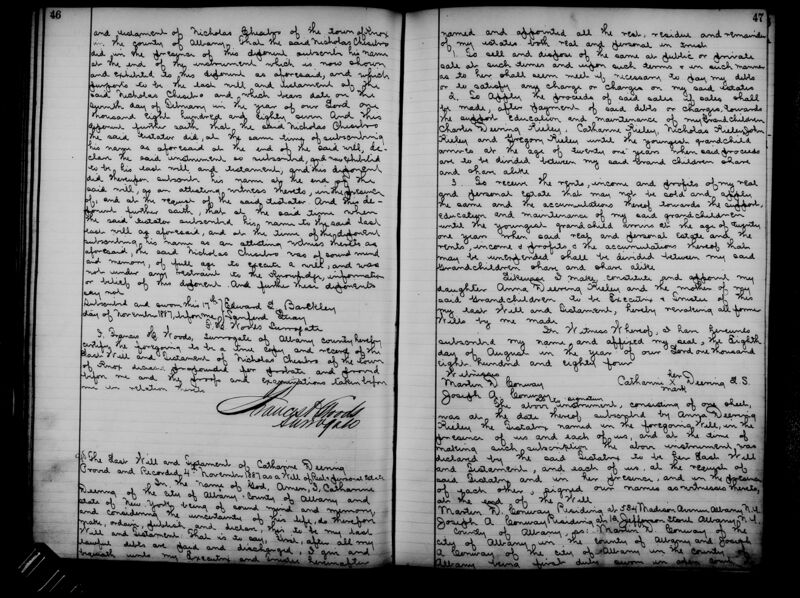 46
and testament of Nicholas Chesebro of the town of Knox
in the county of Albany. That the said Nicholas Chesebro
did, in the presence of this deponent subscribe his name
at the end of the instrument which is now shown
and exhibited to this deponent as aforesaid, and which
purports to be the last will and testament of the
said Nicholas Chesebro and which bears date on the
day of in the year of our Lord one
thousand eight hundred and eighty seven And this
deponent further saith, that he the said Nicholas Chesebro
the said testator did, at the same time of subscribing
his name as aforesaid at the end of the said will, de-
clare the said instrument so subscribed, and now exhibited
to be his last will and testament, and this deponent
did thereupon subscribe his name at the end of the
said will, as an attesting witness thereto, in the presence
of, and at the request of the said testator. And this de-
ponent further saith, that at the said time when
the said testator subscribed his name to the said last
last will as aforesaid and at the time of the deponent
subscribing his name as an attesting witness thereto as
aforesaid, the said Nicholas Chesebro was of sound mind
and memory, of full age to execute a will, and was
not under any restraint to the knowledge, information
or belief of this deponent. And further these deponents
say not
Subscribed and sworn this 17th Edward L. Barckley
day of November 1887, before me Sanford Quay
F. H. Woods Surrogate
I, Francis H. Woods, Surrogate of Albany county hereby
certify the foregoing to be a true copy and record of the
Last Will and Testament of Nicholas Chesebro of the town
of Knox deceased propounded for probate and proved
before me and the proofs and examinations taken before
me in relation thereto
Francis H. Woods
Surrogate
The Last Will and Testament of Catharine Deering
Proved and Recorded November 1887 as a Will of Real & Personal Estate
In the name of God, Amen, I, Catharine
Deering of the City of Albany County of Albany and
State of New York, being of sound mind and memory,
and considering the uncertainty of this life, do therefore
make, ordain, publish and declare, this to be my last
Will and Testament. That is to say, First, after all my
lawful debts are paid and discharged, I give and
bequeath unto my Executrix and trustee hereinafter
47
named and appointed all the rest, residue and remainder
of my estates both real and personal in trust
To sell and dispose of the same at public or private
sale at such times and upon such terms & in such manner
as to her shall seem meet if necessary to pay my debts
or to satisfy any charge or charges on my said Estates
2. To apply the proceeds of said sales if sales shall
be made, after payment of said debts or charges, towards
the support Education and maintenance of my Grandchildren
Charles Deering Rieley, Catharine Rieley, Nicholas Rieley, John
Rieley and Gregory Rieley until the youngest grandchild
arrives at the age of twenty one years when said proceeds
are to be divided between my said Grand children share
and share alike
3. To receive the rents, income and profits of my real
and personal Estate that may not be sold and apply
the same and the accumulations thereof towards the support,
Education and maintenance of my said grandchildren
until the youngest grandchild arrives at the age of twenty
one years when said real and personal Estate and the
rents, income & profits & the accumulations thereof that
may be unexpended shall be divided between my said
Grandchildren share and share alike
Likewise I make, constitute and appoint my
daughter Anna Deering Rieley and the mother of my
said Grandchildren to be Executrix & Trustee of this
my last Will and Testament, hereby revoking all former
Wills by me made
In Witness Whereof, I have hereunto
subscribed my name, and affixed my seal, the Eighth
day of August in the year of our Lord one thousand
eight hundred and eighty four
Witnesses her
Martin D. Conway Catharine X Deering L.S.
Joseph A. Conway to signature mark
The above instrument, consisting of one sheet,
was at the date thereof subscribed by Anna Deering
Rieley the Testatrix named in the foregoing Will, in the
presence of us and each of us, and at the time of
making such subscription the above instrument was
declared by the said Testatrix to be her Last Will
and Testament, and each of us, at the request of
said Testatrix and in her presence, and in the presence
of each other, signed our names as witnesses thereto,
at the end of the Will
Martin D. Conway Residing at 584 Madison Avenue Albany N.Y.
Joseph A. Conway Residing at Jefferson Street Albany N.Y.
County of Albany, ss: Martin D. Conway of the
city of Albany in the county of Albany and Joseph
A Conway of the city of Albany in the county of
Albany being first duly sworn in open court,